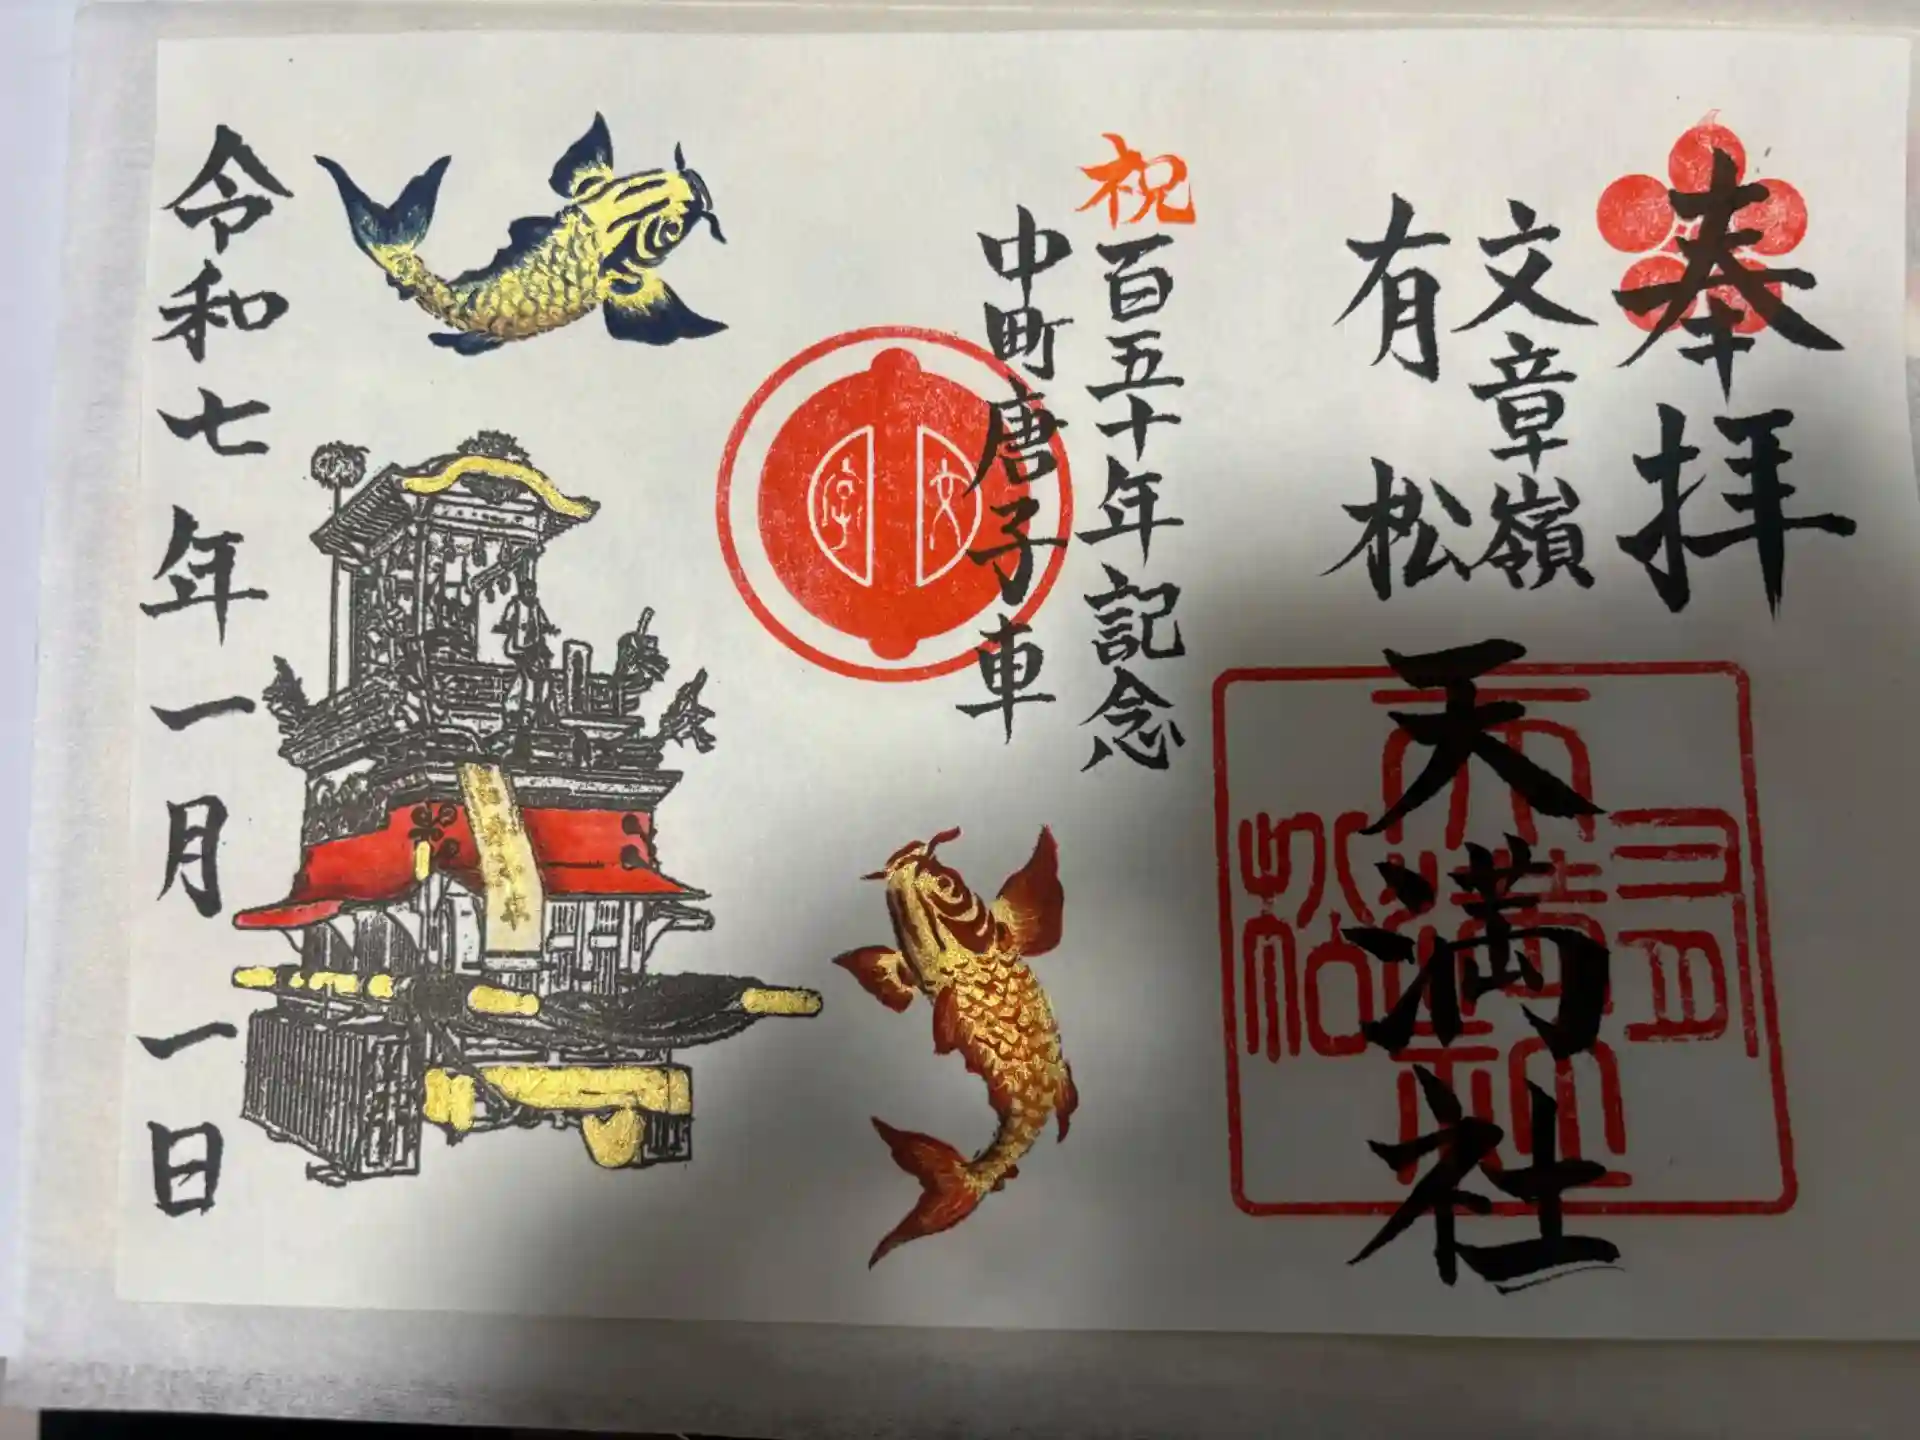 奉拝
文章嶺
有松天満社
祝百五十年記念
中町唐子車
令和七年一月一日